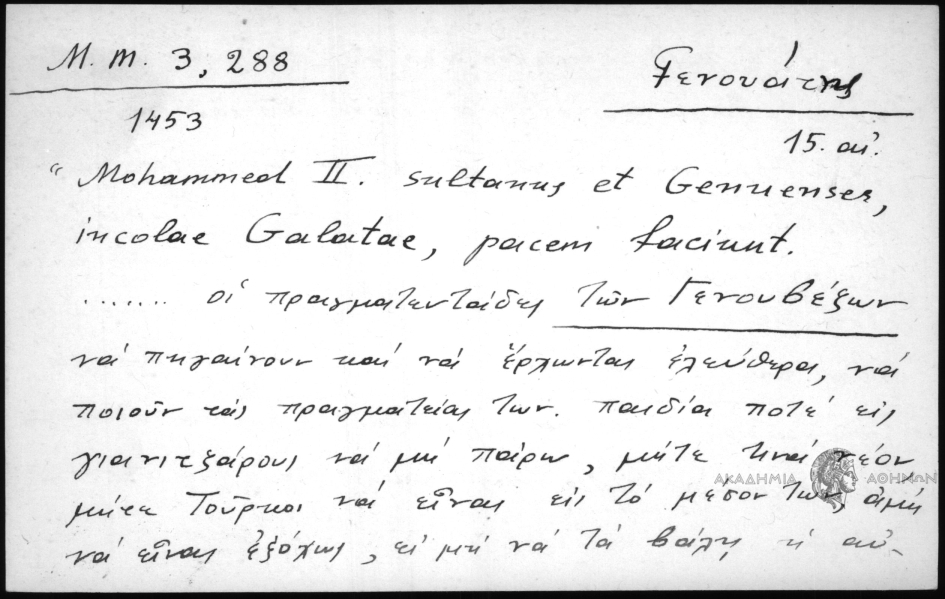 M. m. 3, 288
Γενουάτης
1453
15. αἰ.
“ Mohammed II. sultanus et Genuenses,
incolae Galatae, pacem faciunt.
....... οἱ πραγματευτάδες τῶν Γενουβέζων
νά πηγαίνουν καί νά ἔρχωνται ἐλεύθεροι, νά
ποιοῦν τάς πραγματείας των. παιδία ποτέ εἰς
γιανιτζάρους νά μή πάρω, μήτε τινά νέον
μήτε Τοῦρκοι νά εἶναι εἰς τό μέσον των, ἀμή
νά εἶναι ἐξόχως, εἰ μή νά τά βάλῃ ἡ αὐ-
ΑΚΑΔΗΜΙΑ ΑΘΗΝΩΝ